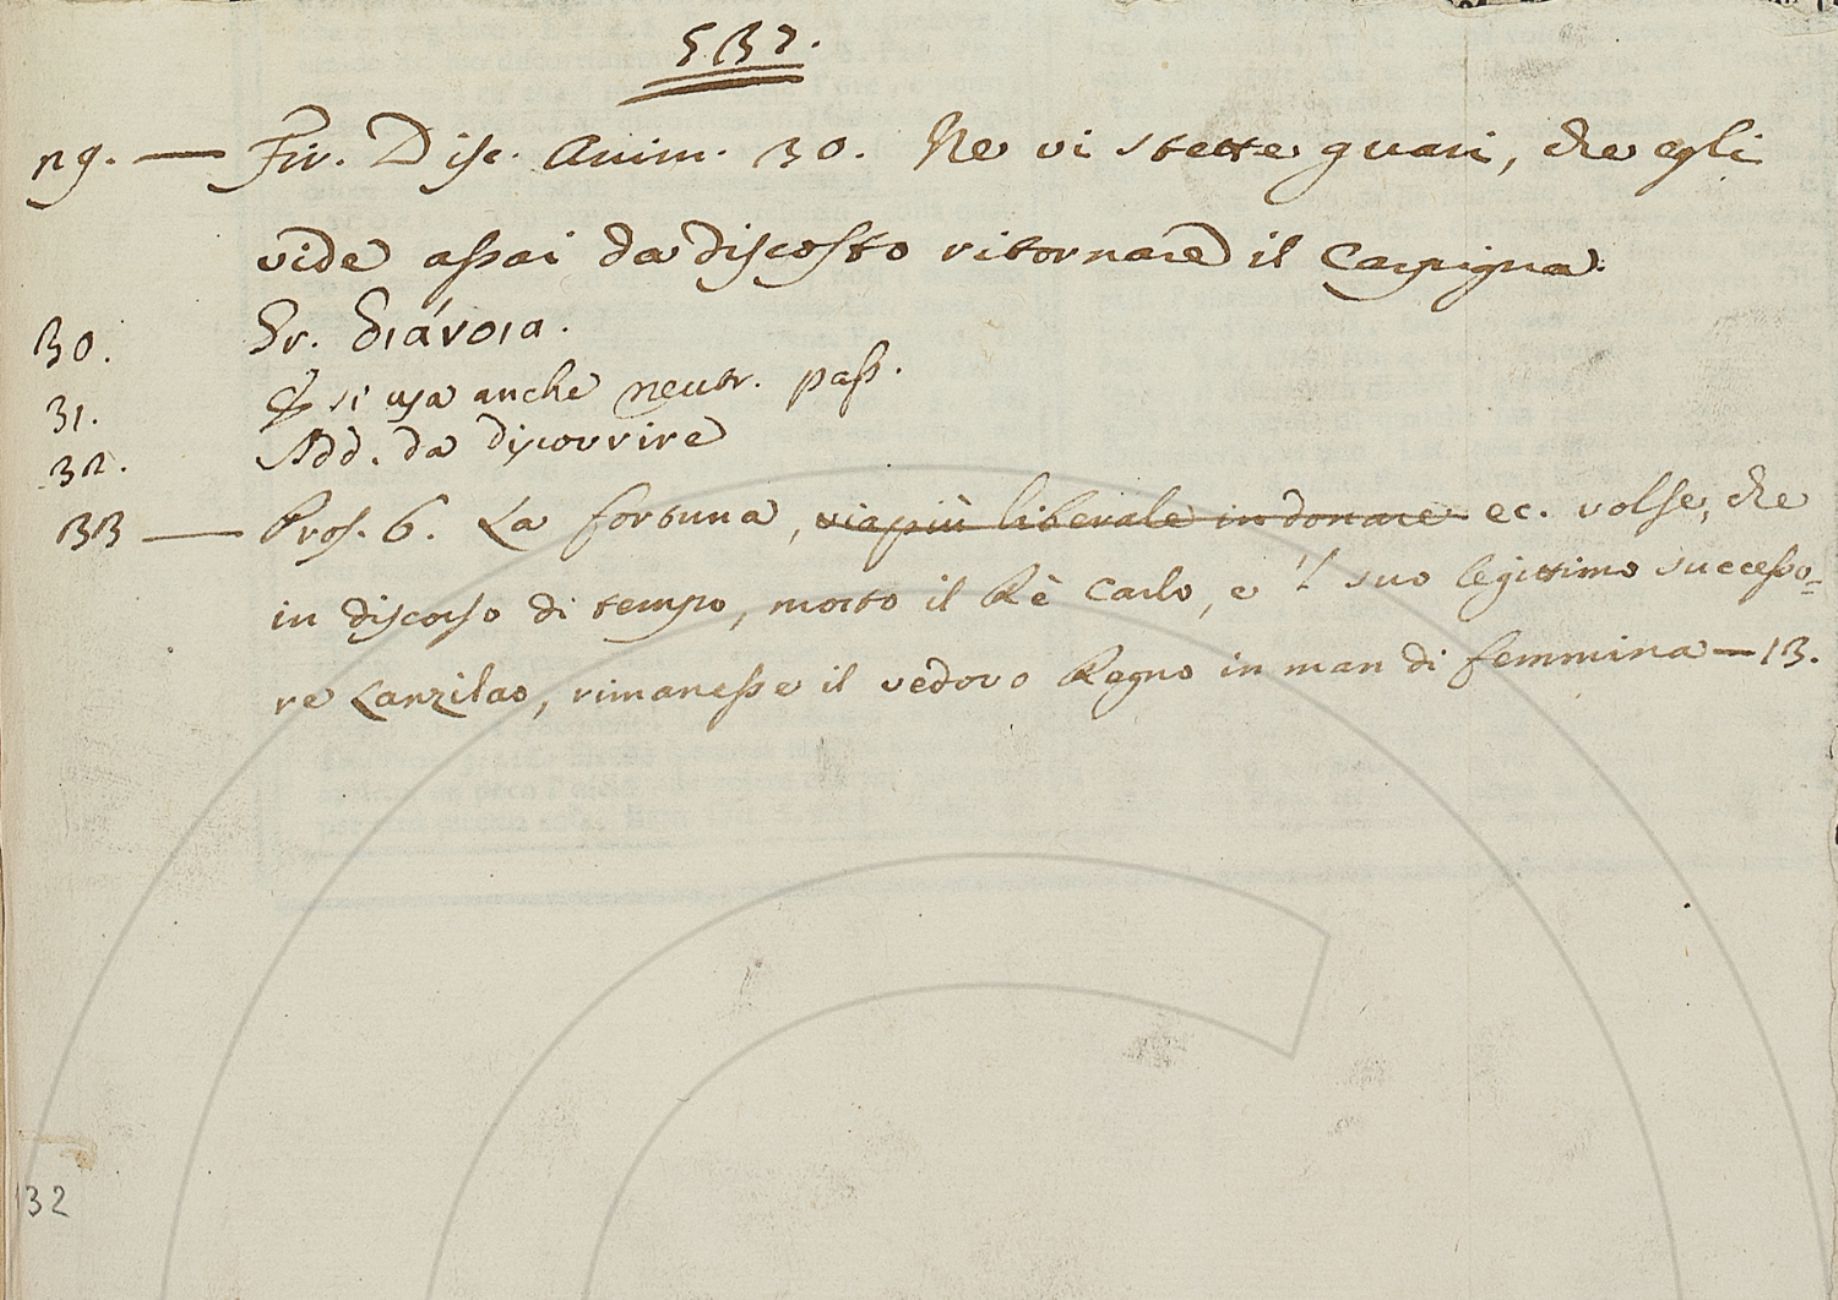 537.
29. — Fir. Disc. Anim. 30. Ne vi stette guari, che egli
vide assai da discosto ritornare il Carpigna.
30. Gr. διάνοια.
31. & si usa anche neutr. pass.
32. Add. da discorrire
33 — Pros. 6. La fortuna, viapiù liberale in donare ec. volse, che
in discorso di tempo, morto il Rè Carlo, e 'l suo legittimo successo=
re Lanzilao, rimanesse il vedovo Regno in man di femmina — 13.
132